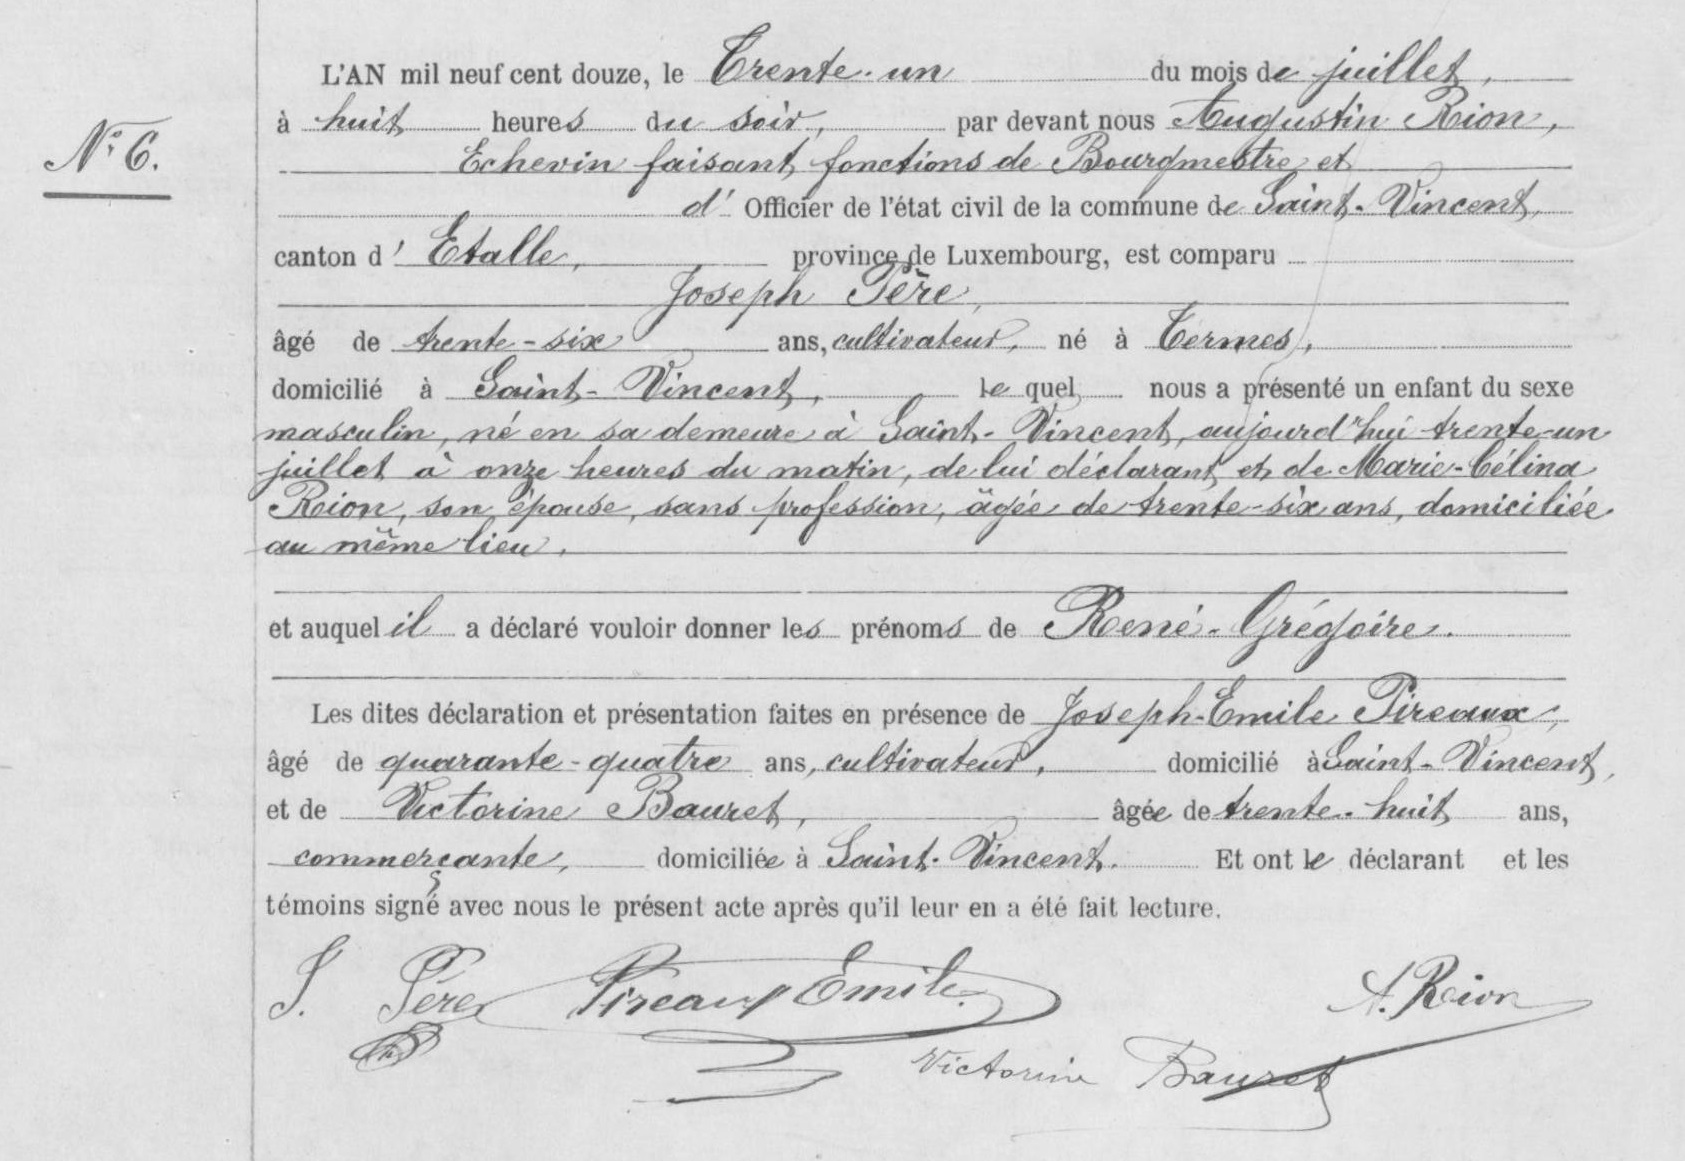 L'AN mil neuf cent douze, le Trente-un du mois de juillet,
à huit heures du soir, par devant nous Augustin Rion,
N° 6.
Echevin faisant fonctions de Bourgmestre et
d' Officier de l'état civil de la commune de Saint-Vincent,
canton d' Etalle, province de Luxembourg, est comparu
Joseph Père,
âgé de trente-six ans, cultivateur, né à Termes,
domicilié à Saint-Vincent, le quel nous a présenté un enfant du sexe
masculin, né en sa demeure à Saint-Vincent, aujourd'hui trente-un
juillet à onze heures du matin, de lui déclarant et de Marie-Célina
Rion, son épouse, sans profession, âgée de trente-six ans, domiciliée
au même lieu.
et auquel il a déclaré vouloir donner les prénoms de René-Grégoire.
Les dites déclaration et présentation faites en présence de Joseph-Emile Pireaux,
âgé de quarante-quatre ans, cultivateur, domicilié à Saint-Vincent,
et de Victorine Bauret, âgée de trente-huit ans,
commerçante, domiciliée à Saint-Vincent. Et ont le déclarant et les
témoins signé avec nous le présent acte après qu'il leur en a été fait lecture.
J. Père Pireaux Emile A. Rion
Victorine Bauret